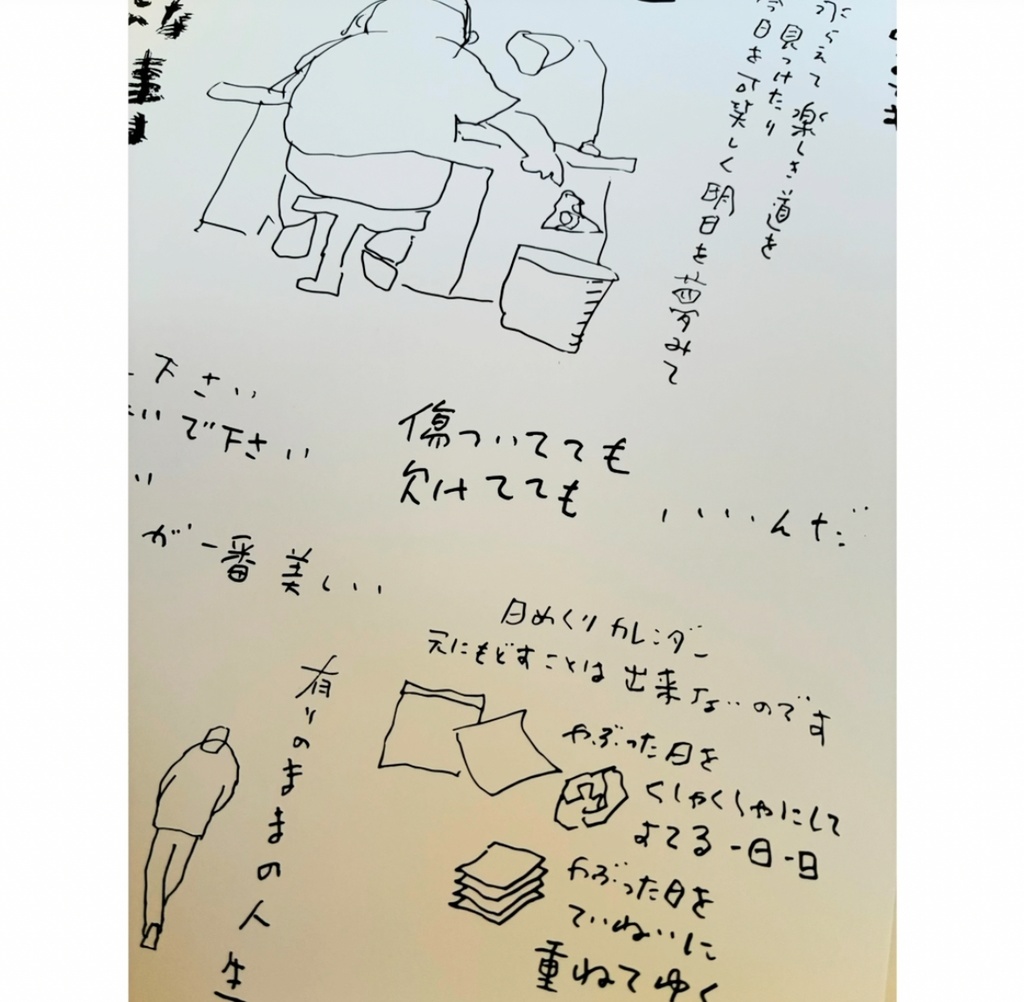 楽しき道を
見つけたり
今日も可笑しく明日を夢みて
下さい
いで下さい
い
が一番美しい
傷ついてても
欠けてても
いいんだ
日めくりカレンダー
元にもどすことは出来ないのです
やぶった日を
くしゃくしゃにして
すてる一日一日
やぶった日を
ていねいに
重ねてゆく
有りのままの人生